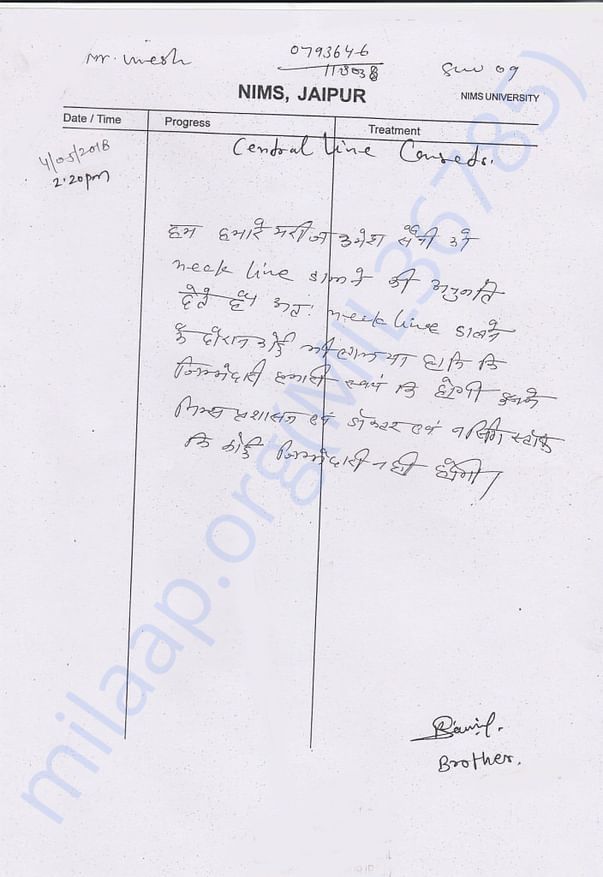 Mr. Umesh
0793646
NIMS, JAIPUR
NIMS UNIVERSITY
Date / Time Progress Treatment
4/05/2018
2:20pm
Central line Consents.
हम हमारे मरीज उमेश सैनी को
neck line डालने की अनुमति
देते है अतः neck line डालने
के दौरान कोई भी लाभ या हानि कि
जिम्मेदारी हमारी स्वयं कि होगी इसमे
निम्स प्रशासन एवं डॉक्टर एवं नर्सिंग स्टॉफ
कि कोई जिम्मेदारी नही होगी।
Brother.
milaap.org(MIL36785)